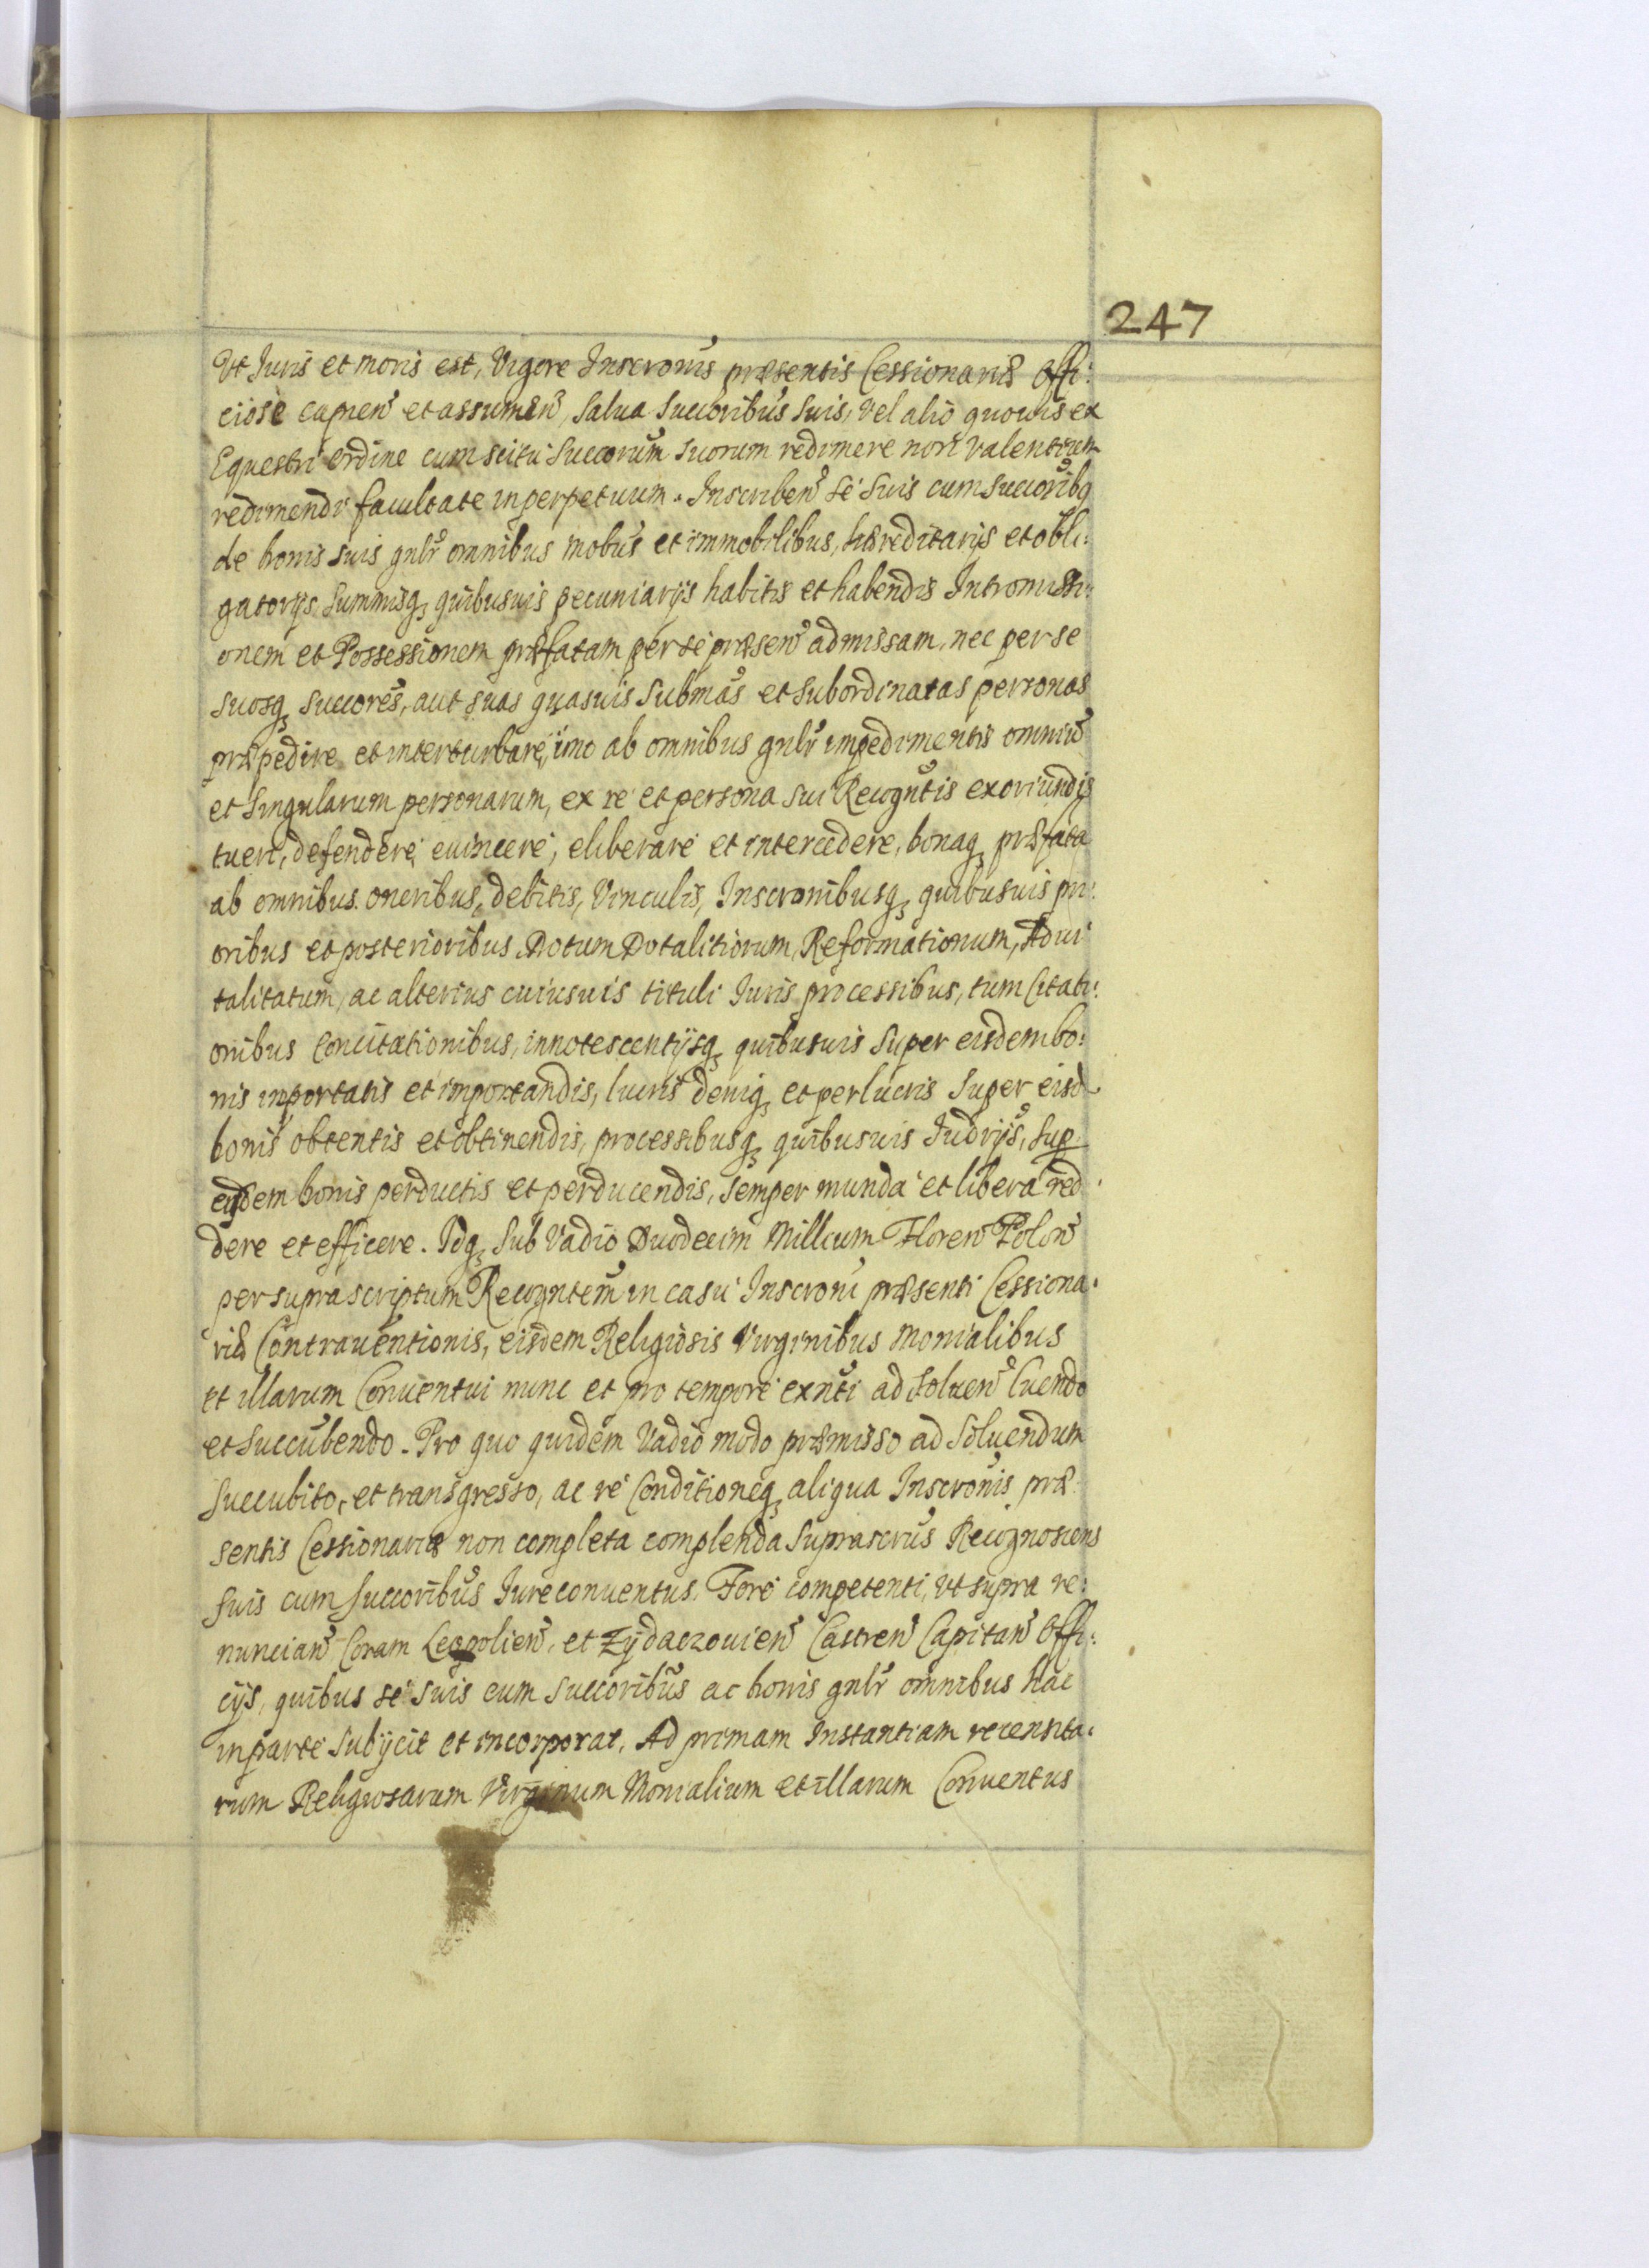 247
Vt Juris et moris est, Vigore Inscronis præsentis Cessionariæ offi:
ciose capien et assumen, salua succoribus suis, vel alio quouis ex
Equestri ordine cum scitu succorum suorum redimere non valentium
redimendi facultate in perpetuum. Inscriben se suis cum succoribq
de bonis suis gnlr omnibus mobus et immobilibus, hæreditarijs et obli:
gatorijs summisq quibusuis pecuniarijs habitis et habendis Intromissi:
onem et Possessionem præfatam per se præsen admissam, nec per se
suosq succores, aut suas quasuis submas et subordinatas personas
præpedire et interturbare, imo ab omnibus gnlr impedimentis omniu
et singularum personarum, ex re et persona sui Recogntis exoriundis
tueri, defendere, euincere, eliberare et intercedere, bonaq præfata
ab omnibus oneribus, debitis, Vinculis, Inscronibusq quibusuis pri:
oribus et posterioribus Dotum Dotalitiorum, Reformationum, Adui
talitatum, ac alterius cuiusuis tituli Juris processibus, tum Citati:
onibus Concitationibus, innotescentijsq quibusuis super eisdem bo:
nis inportatis et importandis, lucris deniq et perlucris super eisd
bonis obtentis et obtinendis, processibusq quibusuis Judrijs, sup
eisdem bonis perductis et perducendis, semper munda et libera red
dere et efficere. Idq sub Vadio Duodecim Millium Floren Polon
per suprascriptum Recogntem in casu Inscroni præsenti Cessiona:
riæ Contrauentionis, eisdem Religiosis Virginibus Monialibus
et illarum Conuentui nunc et pro tempore exnti ad soluen luendo
et succubendo. Pro quo quidem Vadio modo præmisso ad soluendum
succubito, et transgresso, ac re Conditioneq aliqua Inscronis præ
sentis Cessionariæ non completa complenda suprascrus Recognoscens
suis cum succoribus Jure conuentus. Fore competenti, vt supra re:
nuncian Coram Leopolien, et Zydaczouien Castren Capitan Offi:
cijs, quibus se suis cum succoribus ac bonis gnlr omnibus hac
in parte subijcit et incorporat. Ad primam Instantiam recensita:
rum Religiosarum Virginum Monialium et illarum Conuentus